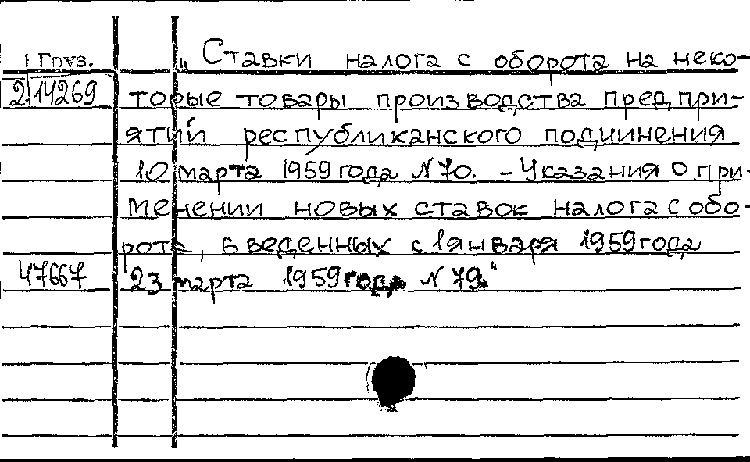 1 Груз. „ Ставки налога с оборота на неко-
2 14269 торые товары производства предпри-
ятий республиканского подчинения
10 марта 1959 года №70. - Указания о при-
менении новых ставок налога с обо-
рота, введенных с 1 января 1959 года
47667 23 марта 1959 года №79."